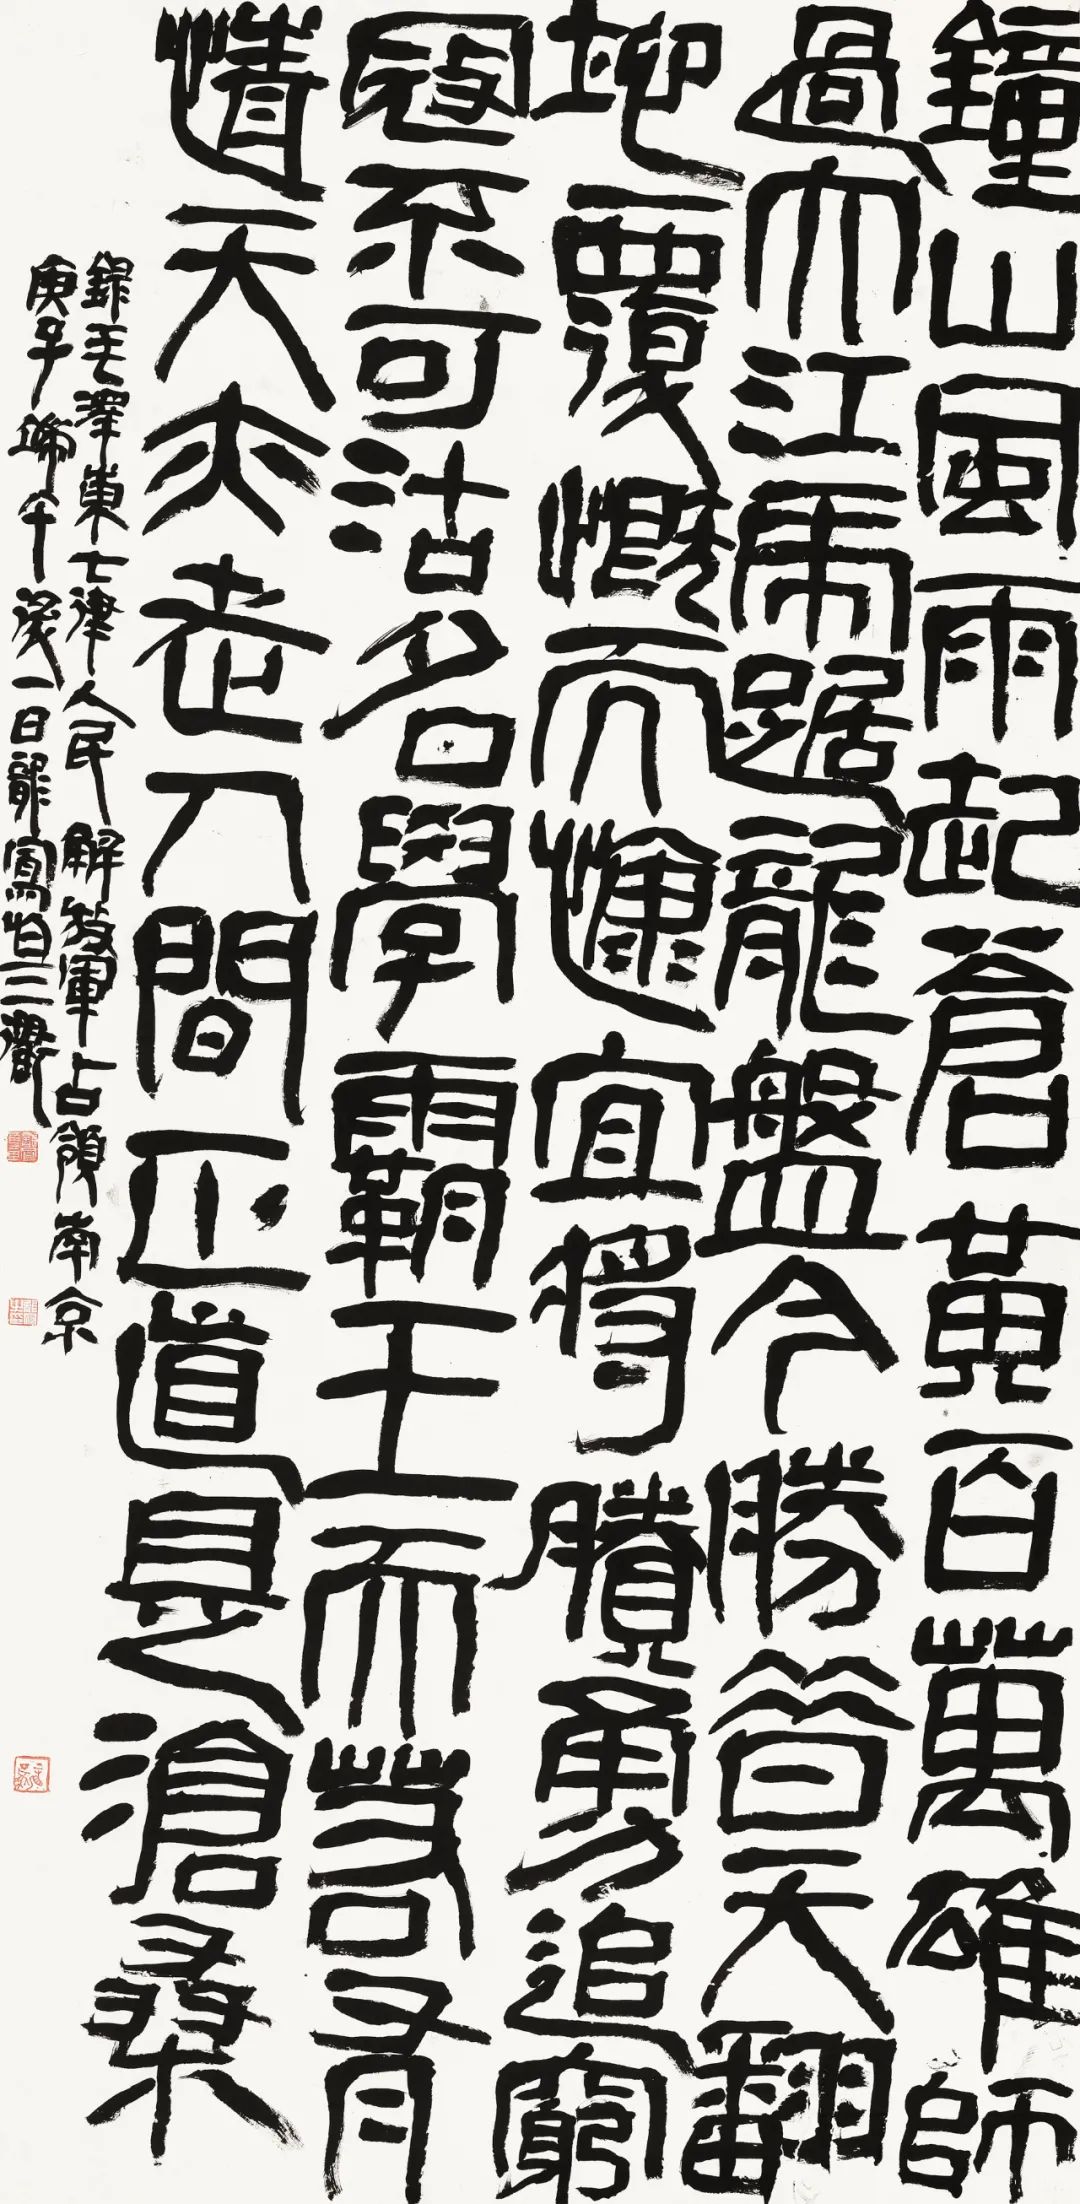 鐘山風雨起蒼黃百萬雄師
過大江虎踞龍盤今勝昔天翻
地覆慨而慷宜將賸勇追窮
寇不可沽名學霸王天若有
情天亦老人間正道是滄桑
錄毛澤東七律人民解放軍占領南京
庚子端午後一日